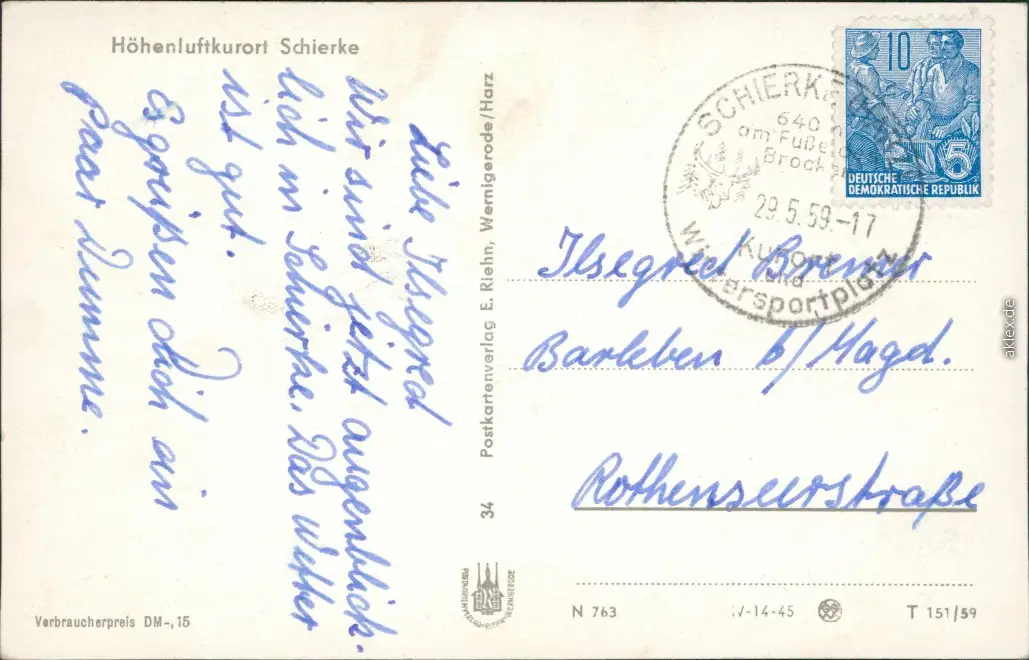 Höhenluftkurort Schierke
Liebe Ilsegred
Wir sind jetzt augenblick-
lich in Schierke. Das Wetter
ist gut.
Es grüßen dich ein
paar Dumme.
Verbraucherpreis DM-,15
34 Postkartenverlag E. Riehn, Wernigerode/Harz
POSTKARTENVERLAG-RIEHN-WERNIGERODE
SCHIERKE
640
am Fuße
Brocken
29.5.59.-17
Kurort
und
Wintersportplatz
10
5
DEUTSCHE
DEMOKRATISCHE REPUBLIK
Ilsegred
Barleben b/Magd.
Rothenseerstraße
N 763 IV-14-45 T 151/59
aklex.de